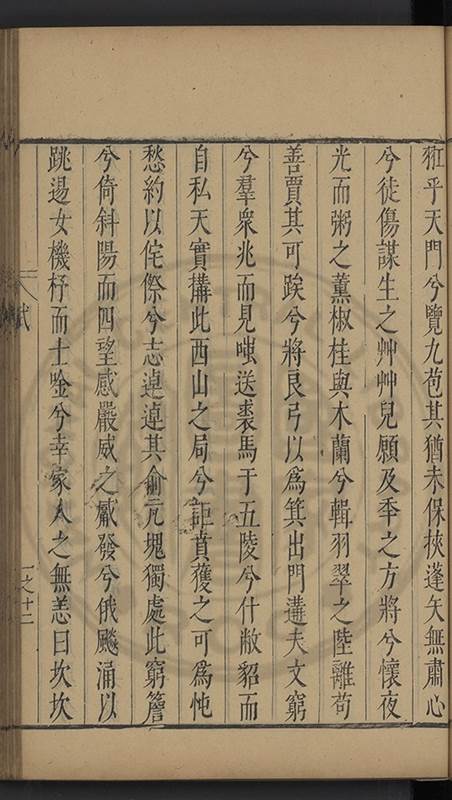 䂓乎天門兮覽九苞其猶未保挾蓬矢無肅心
兮徒傷謀生之艸艸兒願及季之方將兮懷夜
光而粥之薰椒桂與木蘭兮輯羽翠之陸離苟
善賈其可跂兮將良弓以爲箕出門遘夫文窮
兮羣衆兆而見嗤送裘馬于五陵兮什敝貂而
自私天實搆此西山之局兮詎蕡穫之可爲忳
愁約以侘傺兮志逴逴其俞兀塊獨處此窮簷
兮倚斜陽而四望感嚴威之觱發兮俄飇涌以
跳邊女機杼而士唫兮幸家人之無恙曰坎坎
弍
一之十二